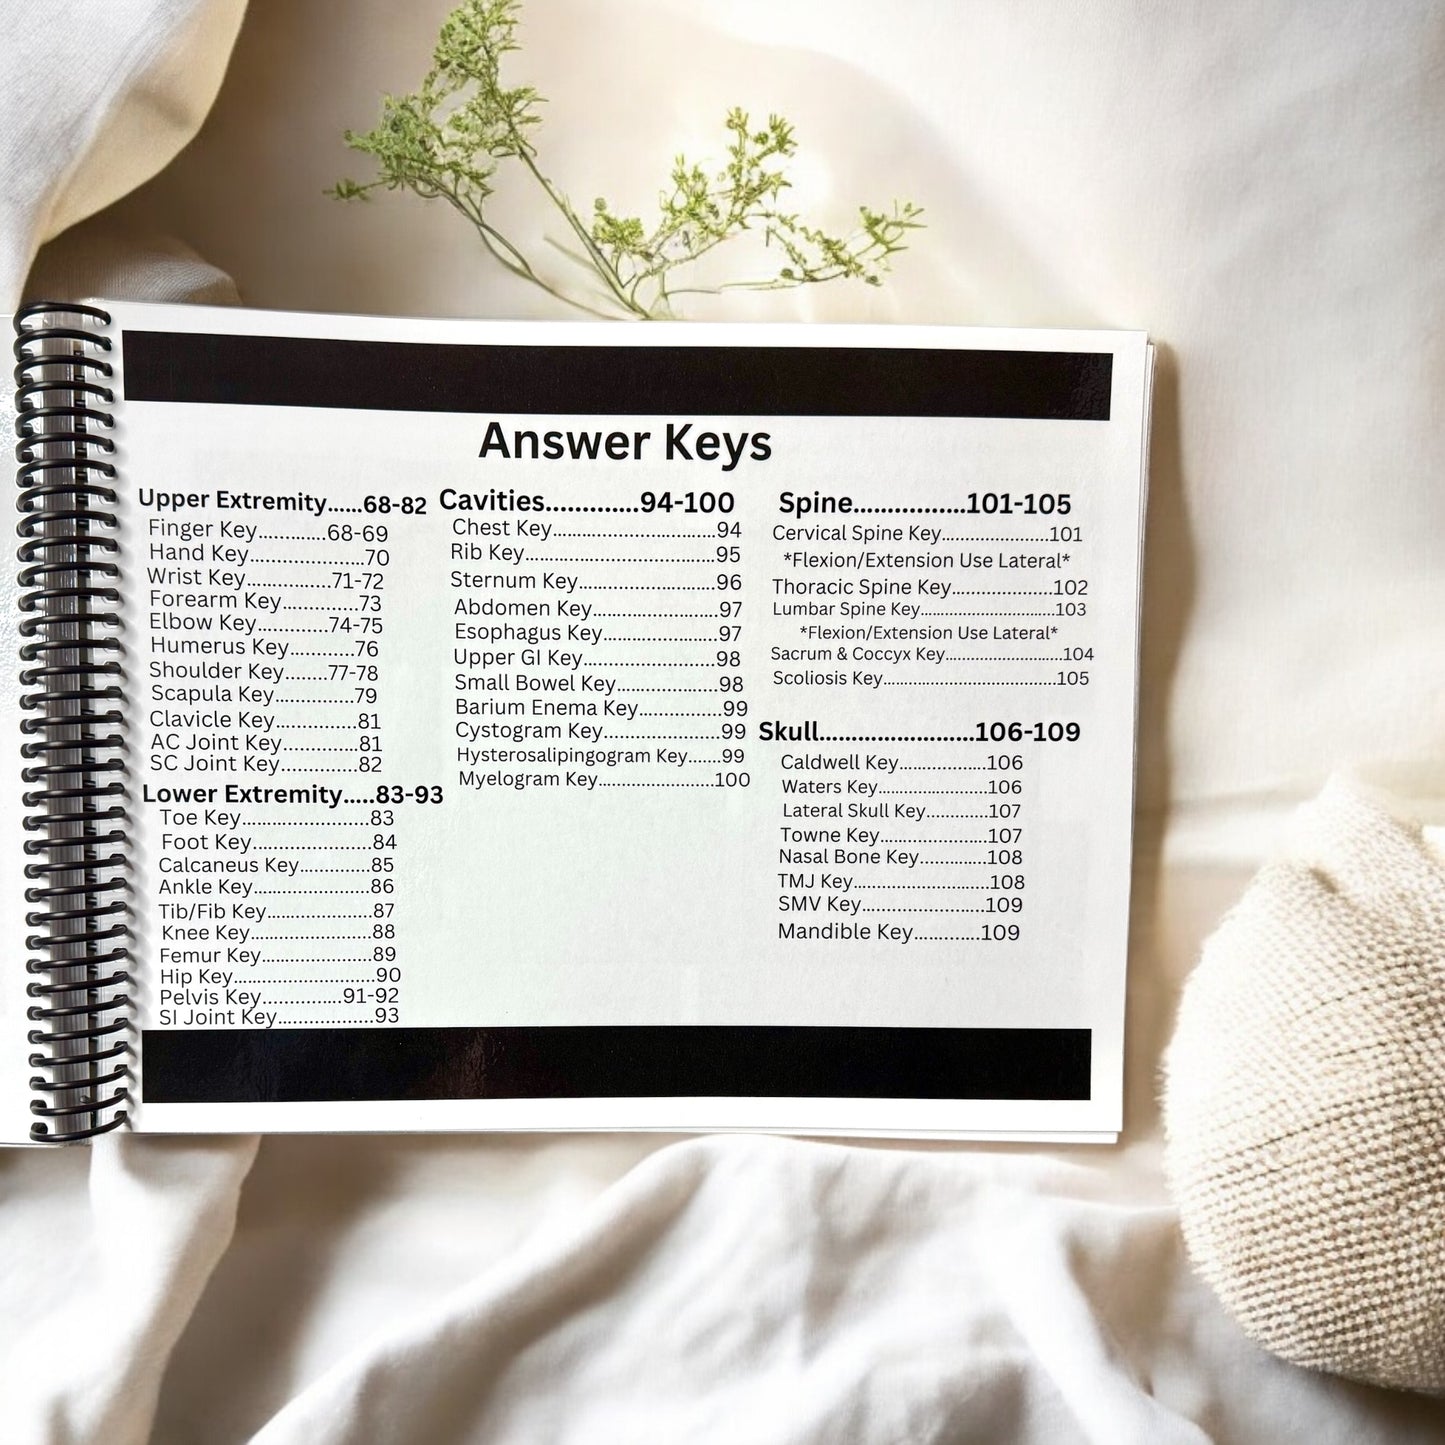 Answer Keys
Upper Extremity......68-82
Finger Key............68-69
Hand Key....................70
Wrist Key...............71-72
Forearm Key.............73
Elbow Key............74-75
Humerus Key...........76
Shoulder Key.......77-78
Scapula Key..............79
Clavicle Key..............81
AC Joint Key.............81
SC Joint Key.............82
Lower Extremity.....83-93
Toe Key......................83
Foot Key.....................84
Calcaneus Key............85
Ankle Key....................86
Tib/Fib Key..................87
Knee Key.....................88
Femur Key...................89
Hip Key.........................90
Pelvis Key..............91-92
SI Joint Key.................93
Cavities.............94-100
Chest Key............................94
Rib Key.................................95
Sternum Key........................96
Abdomen Key.....................97
Esophagus Key...................97
Upper GI Key.......................98
Small Bowel Key.................98
Barium Enema Key..............99
Cystogram Key....................99
Hysterosalipingogram Key.......99
Myelogram Key.........................100
Spine................101-105
Cervical Spine Key.......................101
*Flexion/Extension Use Lateral*
Thoracic Spine Key.....................102
Lumbar Spine Key............................103
*Flexion/Extension Use Lateral*
Sacrum & Coccyx Key.........................104
Scoliosis Key.....................................105
Skull.........................106-109
Caldwell Key..................106
Waters Key.......................106
Lateral Skull Key.............107
Towne Key......................107
Nasal Bone Key..............108
TMJ Key...........................108
SMV Key.........................109
Mandible Key.............109